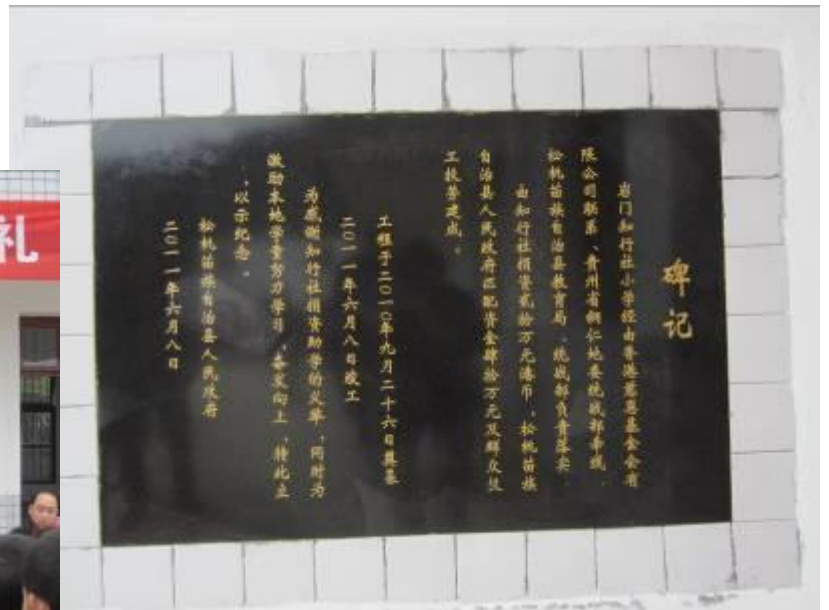 碑记
岩门知行社小学经由香港慈恩基金会有
限公司联系、贵州省铜仁地委统战部牵线、
松桃苗族自治县教育局、统战部负责落实，
由知行社捐资贰拾万元港币，松桃苗族
自治县人民政府匹配资金肆拾万元及群众投
工投劳建成。
工程于二〇一〇年九月二十六日奠基
二〇一一年六月八日竣工
为感谢知行社捐资助学的义举，同时为
激励本地学童努力学习，奋发向上，特此立
，以示纪念。
松桃苗族自治县人民政府
二〇一一年六月八日
礼